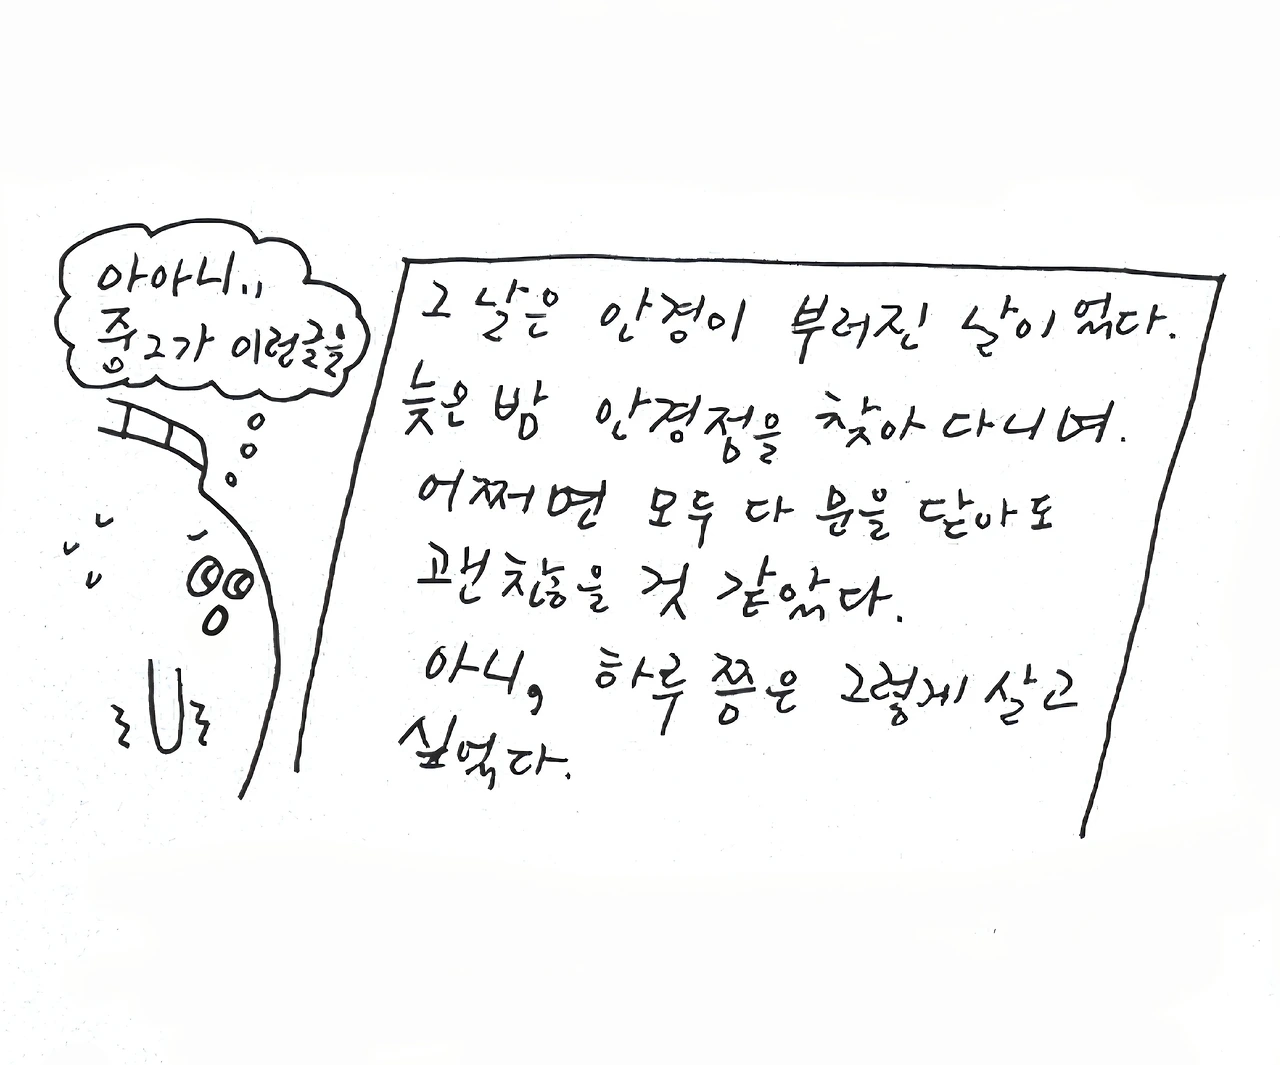 아아니..
중2가 이런글을
그 날은 안경이 부러진 날이었다.
늦은 밤 안경점을 찾아 다니며.
어쩌면 모두 다 문을 닫아도
괜찮을 것 같았다.
아니, 하루 쯤은 그렇게 살고
싶었다.